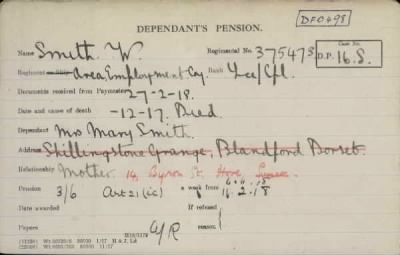 DEPENDANT'S PENSION.
DF0498
Name Smith. W. Regimental No. 375473
Case No.
D.P. 16.S.
Regiment or Ship Area Employment Coy Rank Lce/Cpl.
Documents received from Paymaster 27-2-18.
Date and cause of death -12-17. Died
Dependant Mrs Mary Smith.
Address Shillingstone Grange, Blandford Dorset.
Relationship Mother. 14, Byron St. Hove, Sussex.
Pension 3/6 Art 21 (ic) a week from 16.2.18
Date awarded If refused
Papers A/R reason